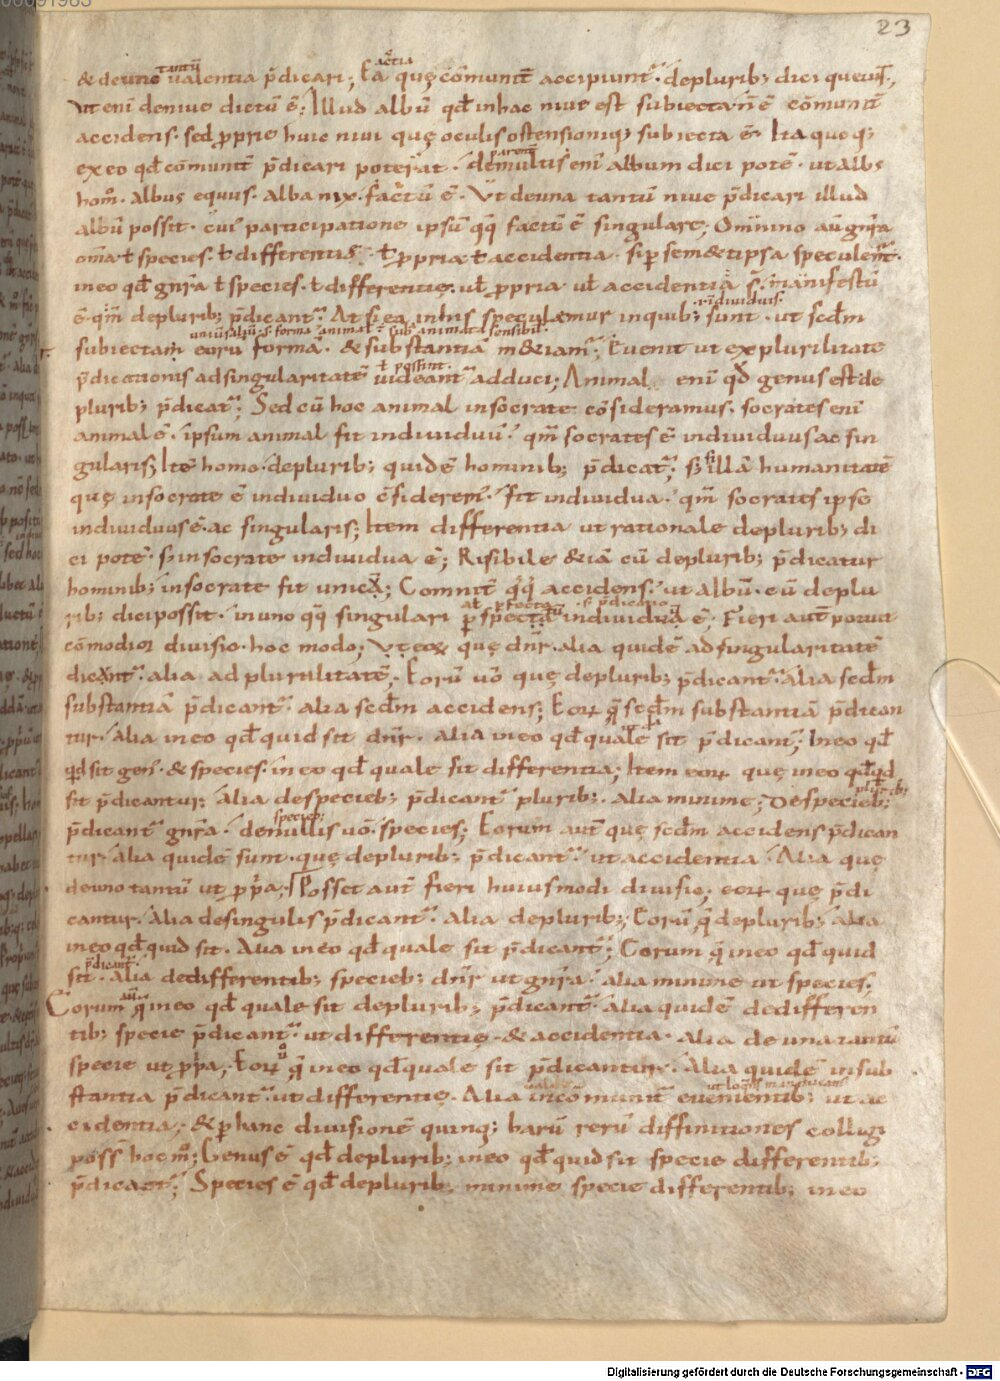 23
tantũ accĩa
& de uno ualentia p̄dicari; Ea quę cõmunit̃ accipiunt̃. de plurib; dici queunt̃;
Vt eni᷑ de niue dictũ ẽ; Illud albũ qđ in hac niue est subiecta n̄ ẽ cõmunit̃
accidens. sed proprie huic niui quę oculis ostensioniq; subiecta ẽ. Ita quoq;
parent̃
ex eo qđ cõmunit̃ p̄dicari poterat. de multis eni᷑ album dici potẽ. ut albus
homo. albus equus. alba nix. factũ ẽ. Vt de una tantũ niue p̄dicari illud
albũ possit. cui᷑ participatione ipsũ q̊q; factũ ẽ singulare; Omnino aũ gnr̄a
om̄a ł species. ł differentię. ł propria ł accidentia. si p semet ipsa speculem̃.
in eo qđ gnr̄a ł species. ł differentię. uł propria uł accidentia s̃. manifestũ
s. individuis.
ẽ. qm̃ de plurib; p̄dicant̃. At si ea in his speculemur in quib; sunt. ut scđm
subiectam eorũ formã. & substantiã metiam̃; Euenit ut ex pluralitate
ł possint.
p̄dicationis ad singularitatẽ uideant̃ adduci; Animal eni᷑ qđ genus est de
plurib; p̄dicat̃; Sed cũ hoc animal in socrate cõsideramus. socrates eni᷑
animal ẽ. ipsum animal fit individuũ. qm̃ socrates ẽ individuus ac sin
gularis; Itẽ homo. de plurib; quidẽ hominib; p̄dicat̃; s; si illã humanitatẽ
quę in socrate ẽ individuo c̃siderem̃. fit individua. qm̃ socrates ipse
individuus ẽ. ac singularis; Item differentia ut rationale de plurib; di
ci potẽ. s; in socrate individua ẽ; Risibile &iã cũ de plurib; p̄dicatur
hominib; in socrate fit unica; Comnit̃ q̊q; accidens. ut albũ. cũ de plu
ał perfecta .s. p̄dicatio
rib; dici possit. in uno q̊q; singulari p̄spectũ individuũ ẽ; Fieri aut̃ potuit
cõmodior divisio. hoc modo; Vt eoꝝ quę dn̄r. alia quidẽ ad singularitatẽ
dicant̃. alia ad pluralitatẽ. Eorũ uõ quę de plurib; p̄dicant̃. alia scđm
substantiã p̄dicant̃. alia scđm accidens; Eoꝝ quę scđm substantiã p̄dican
tur. alia in eo qđ quid sit dn̄r. alia in eo qđ quale sit p̄dicant̃; In eo qđ
quid sit gen᷑. & species. in eo qđ quale sit differentia; Item eoꝝ quę in eo qđ qd
pluribs
sit p̄dicantur. alia de specieb; p̄dicant̃ plurib;. alia minime; De specieb;
specieb;
p̄dicant̃ gnr̄a. de nullis uõ. species; Eorum aut̃ quę scđm accidens p̄dican
tur. alia quidẽ sunt. quę de plurib; p̄dicant̃. ut accidentia. Alia quę
de uno tantũ ut ppa; Posset aut̃ fieri huiusmodi divisio; eoꝝ quę p̄di
cantur. alia de singulis p̄dicant̃. alia de plurib;; Eorũ quę de plurib; alia
in eo qđ quid sit. Alia in eo qđ quale sit p̄dicant̃; Eorum quę in eo qđ quid
p̄dicant̃.
sit. alia de differentib; specieb; dn̄r ut gnr̄a. alia minime ut species.
aũ
Eorum quę in eo qđ quale sit de plurib; p̄dicant̃. alia quidẽ de differen
tib; specie p̄dicant̃. ut differentię. & accidentia. alia de una tantũ
uo
specie ut ppa; Eoꝝ quę in eo qđ quale sit p̄dicantur. Alia quidẽ in sub
stantia p̄dicant̃. ut differentię. Alia in cõmunit̃ euenientib; ut ac
cidentia; & p hanc divisionẽ quinq; harũ rerũ diffinitiones colligi
poss̃ hoc m̊; Genus ẽ qđ de plurib; in eo qđ quid sit specie differentib;
p̄dicat̃; Species ẽ qđ de plurib; minime specie differentib; in eo
Digitalisierung gefördert durch die Deutsche Forschungsgemeinschaft - DFG